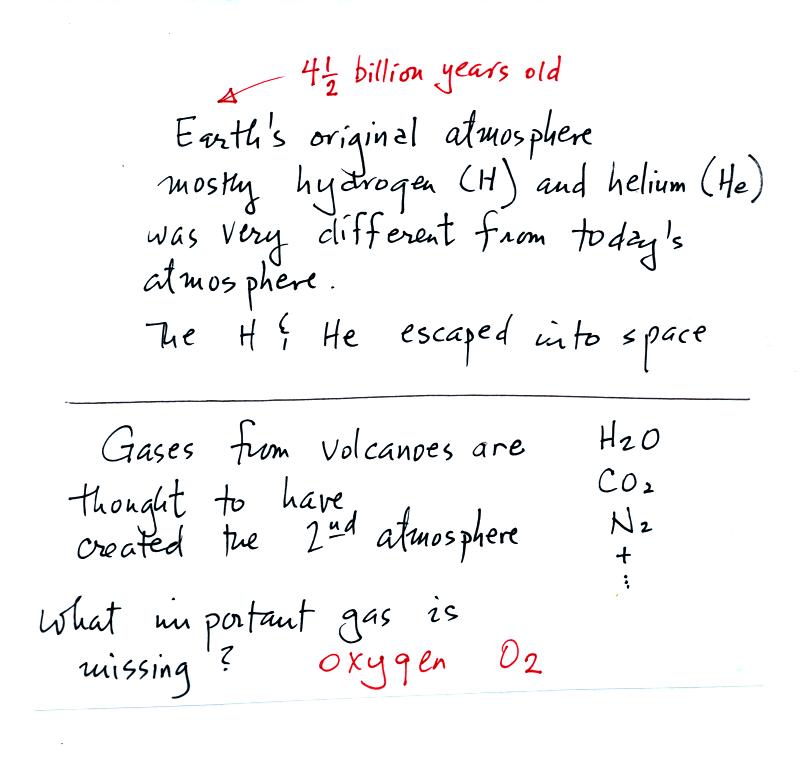 4½ billion years old
Earth's original atmosphere
mostly hydrogen (H) and helium (He)
was very different from today's
atmosphere.
The H & He escaped into space
Gases from volcanoes are
thought to have
created the 2nd atmosphere
H2O
CO2
N2
+
⋮
What important gas is
missing?
oxygen O2